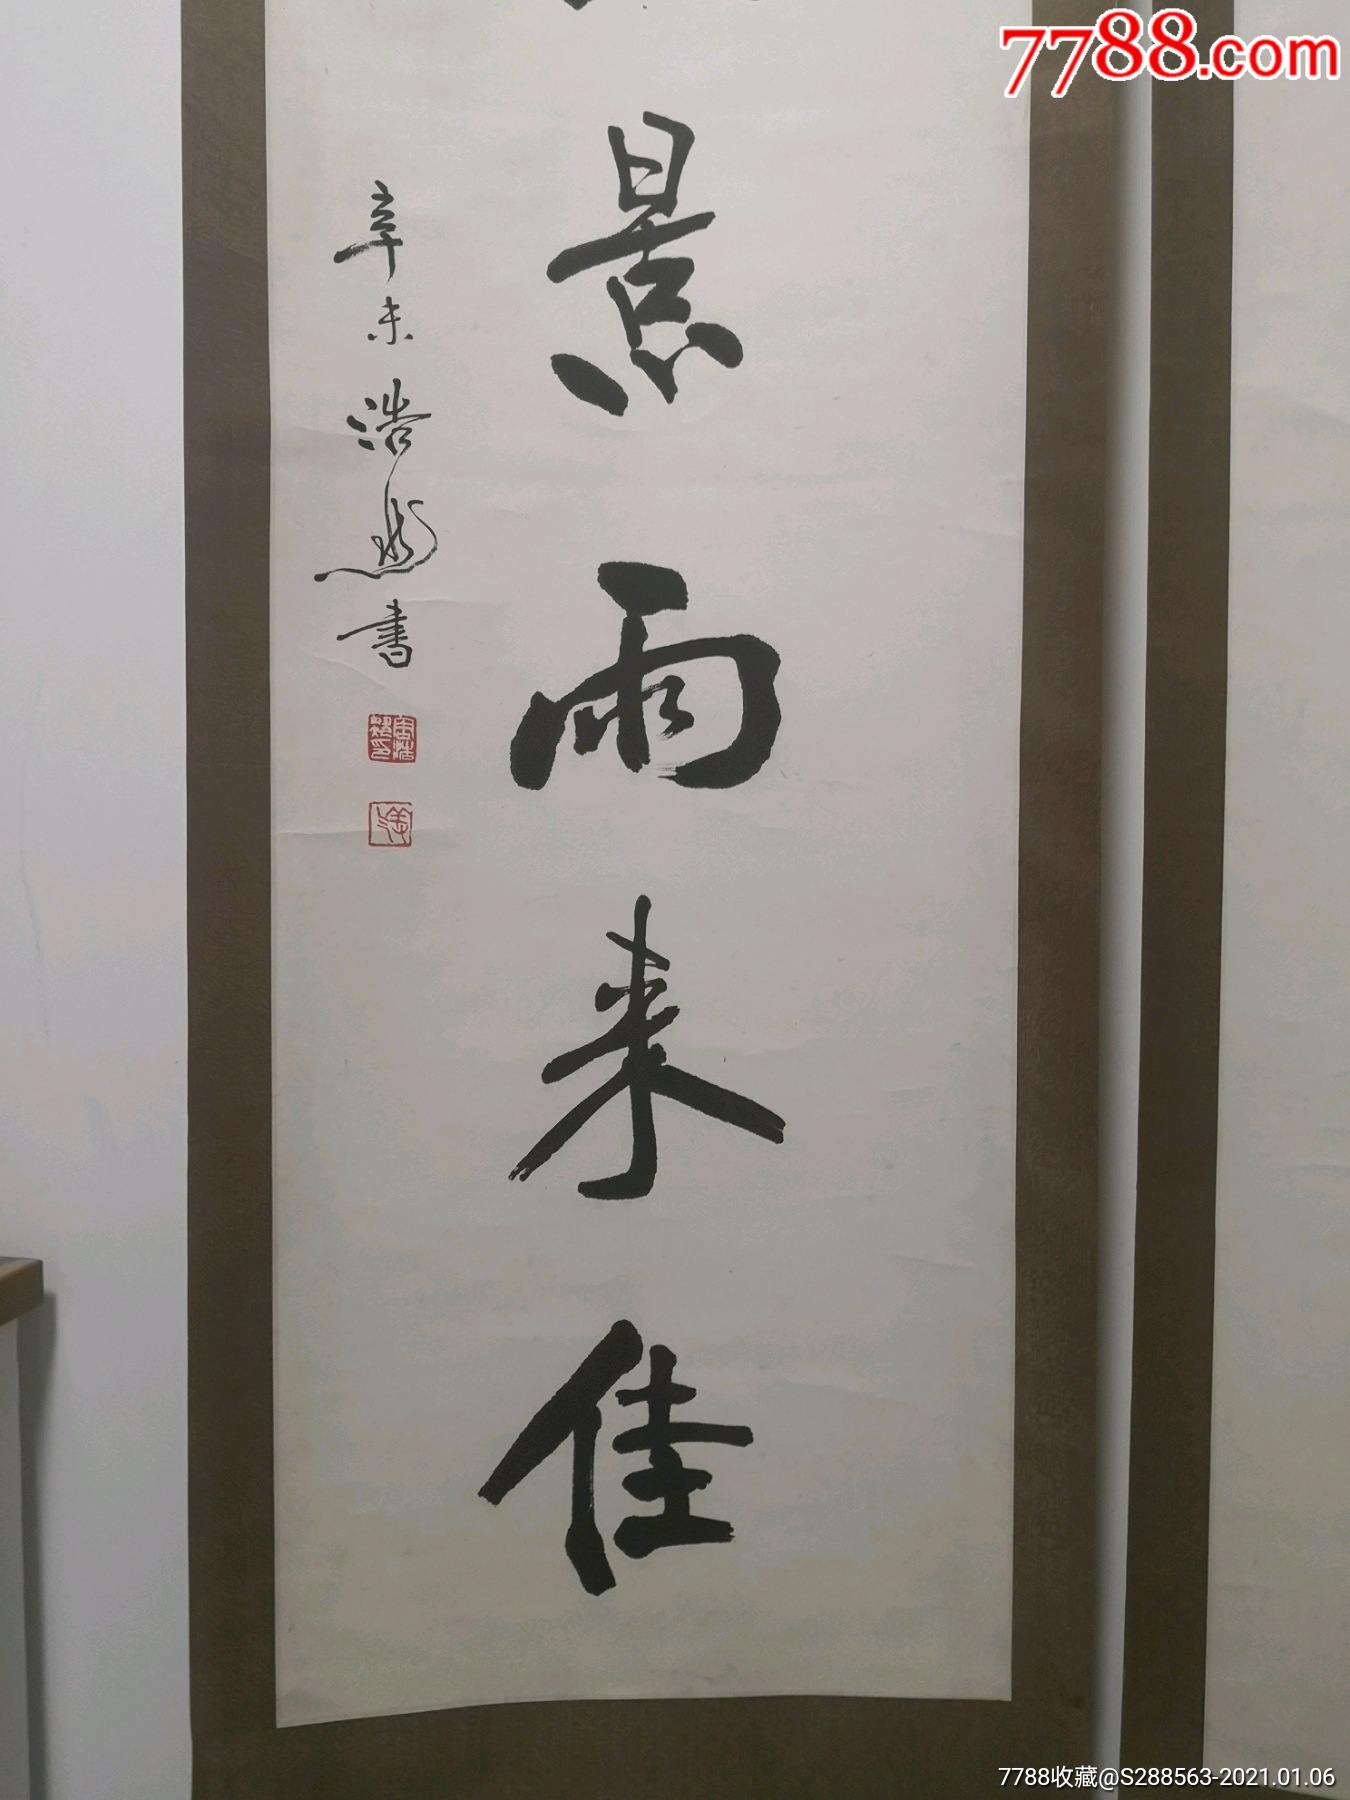 7788.com
景雨来佳
辛未浩然书
7788收藏@S288563-2021.01.06